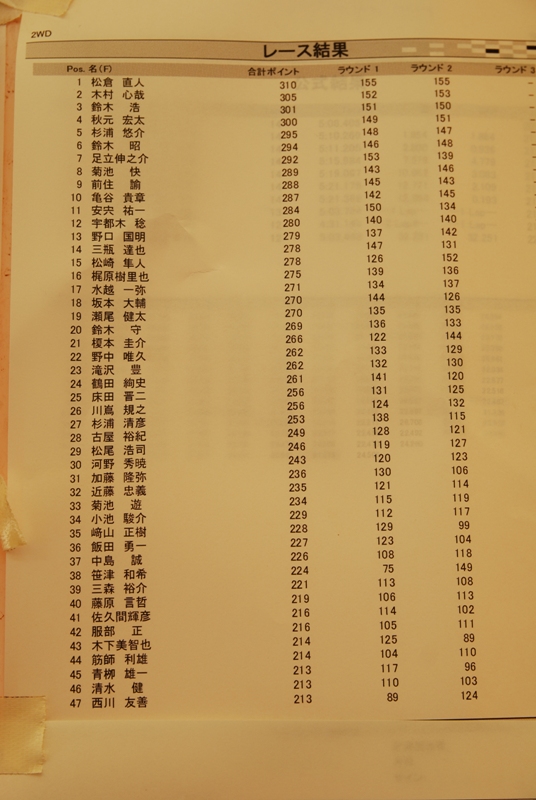 2WD
レース結果
Pos. 名(F) 合計ポイント ラウンド 1 ラウンド 2 ラウンド 3
1 松倉 直人 310 155 155 -
2 木村 心哉 305 152 153 -
3 鈴木 浩 301 151 150
4 秋元 宏太 300 149 151
5 杉浦 悠介 295 148 147
6 鈴木 昭 294 146 148
7 足立伸之介 292 153 139
8 菊池 快 289 143 146
9 前住 諭 288 145 143
10 亀谷 貴章 287 142 145
11 安宍 祐一 284 150 134
12 宇都木 稔 280 140 140
13 野口 国明 279 137 142
14 三瓶 達也 278 147 131
15 松崎 隼人 278 126 152
16 梶原樹里也 275 139 136
17 水越 一弥 271 134 137
18 坂本 大輔 270 144 126
19 瀬尾 健太 270 135 135
20 鈴木 守 269 136 133
21 榎本 圭介 266 122 144
22 野中 唯久 262 133 129
23 滝沢 豊 262 132 130
24 鶴田 絢史 261 141 120
25 床田 晋二 256 131 125
26 川嶌 規之 256 124 132
27 杉浦 清彦 253 138 115
28 古屋 裕紀 249 128 121
29 松尾 浩司 246 119 127
30 河野 秀暁 243 120 123
31 加藤 隆弥 236 130 106
32 近藤 忠義 235 121 114
33 菊池 遊 234 115 119
34 小池 駿介 229 112 117
35 﨑山 正樹 228 129 99
36 飯田 勇一 227 123 104
37 中島 誠 226 108 118
38 笹津 和希 224 75 149
39 三森 裕介 221 113 108
40 藤原 言哲 219 106 113
41 佐久間輝彦 216 114 102
42 服部 正 216 105 111
43 木下美智也 214 125 89
44 筋師 利雄 214 104 110
45 青栁 雄一 213 117 96
46 清水 健 213 110 103
47 西川 友善 213 89 124